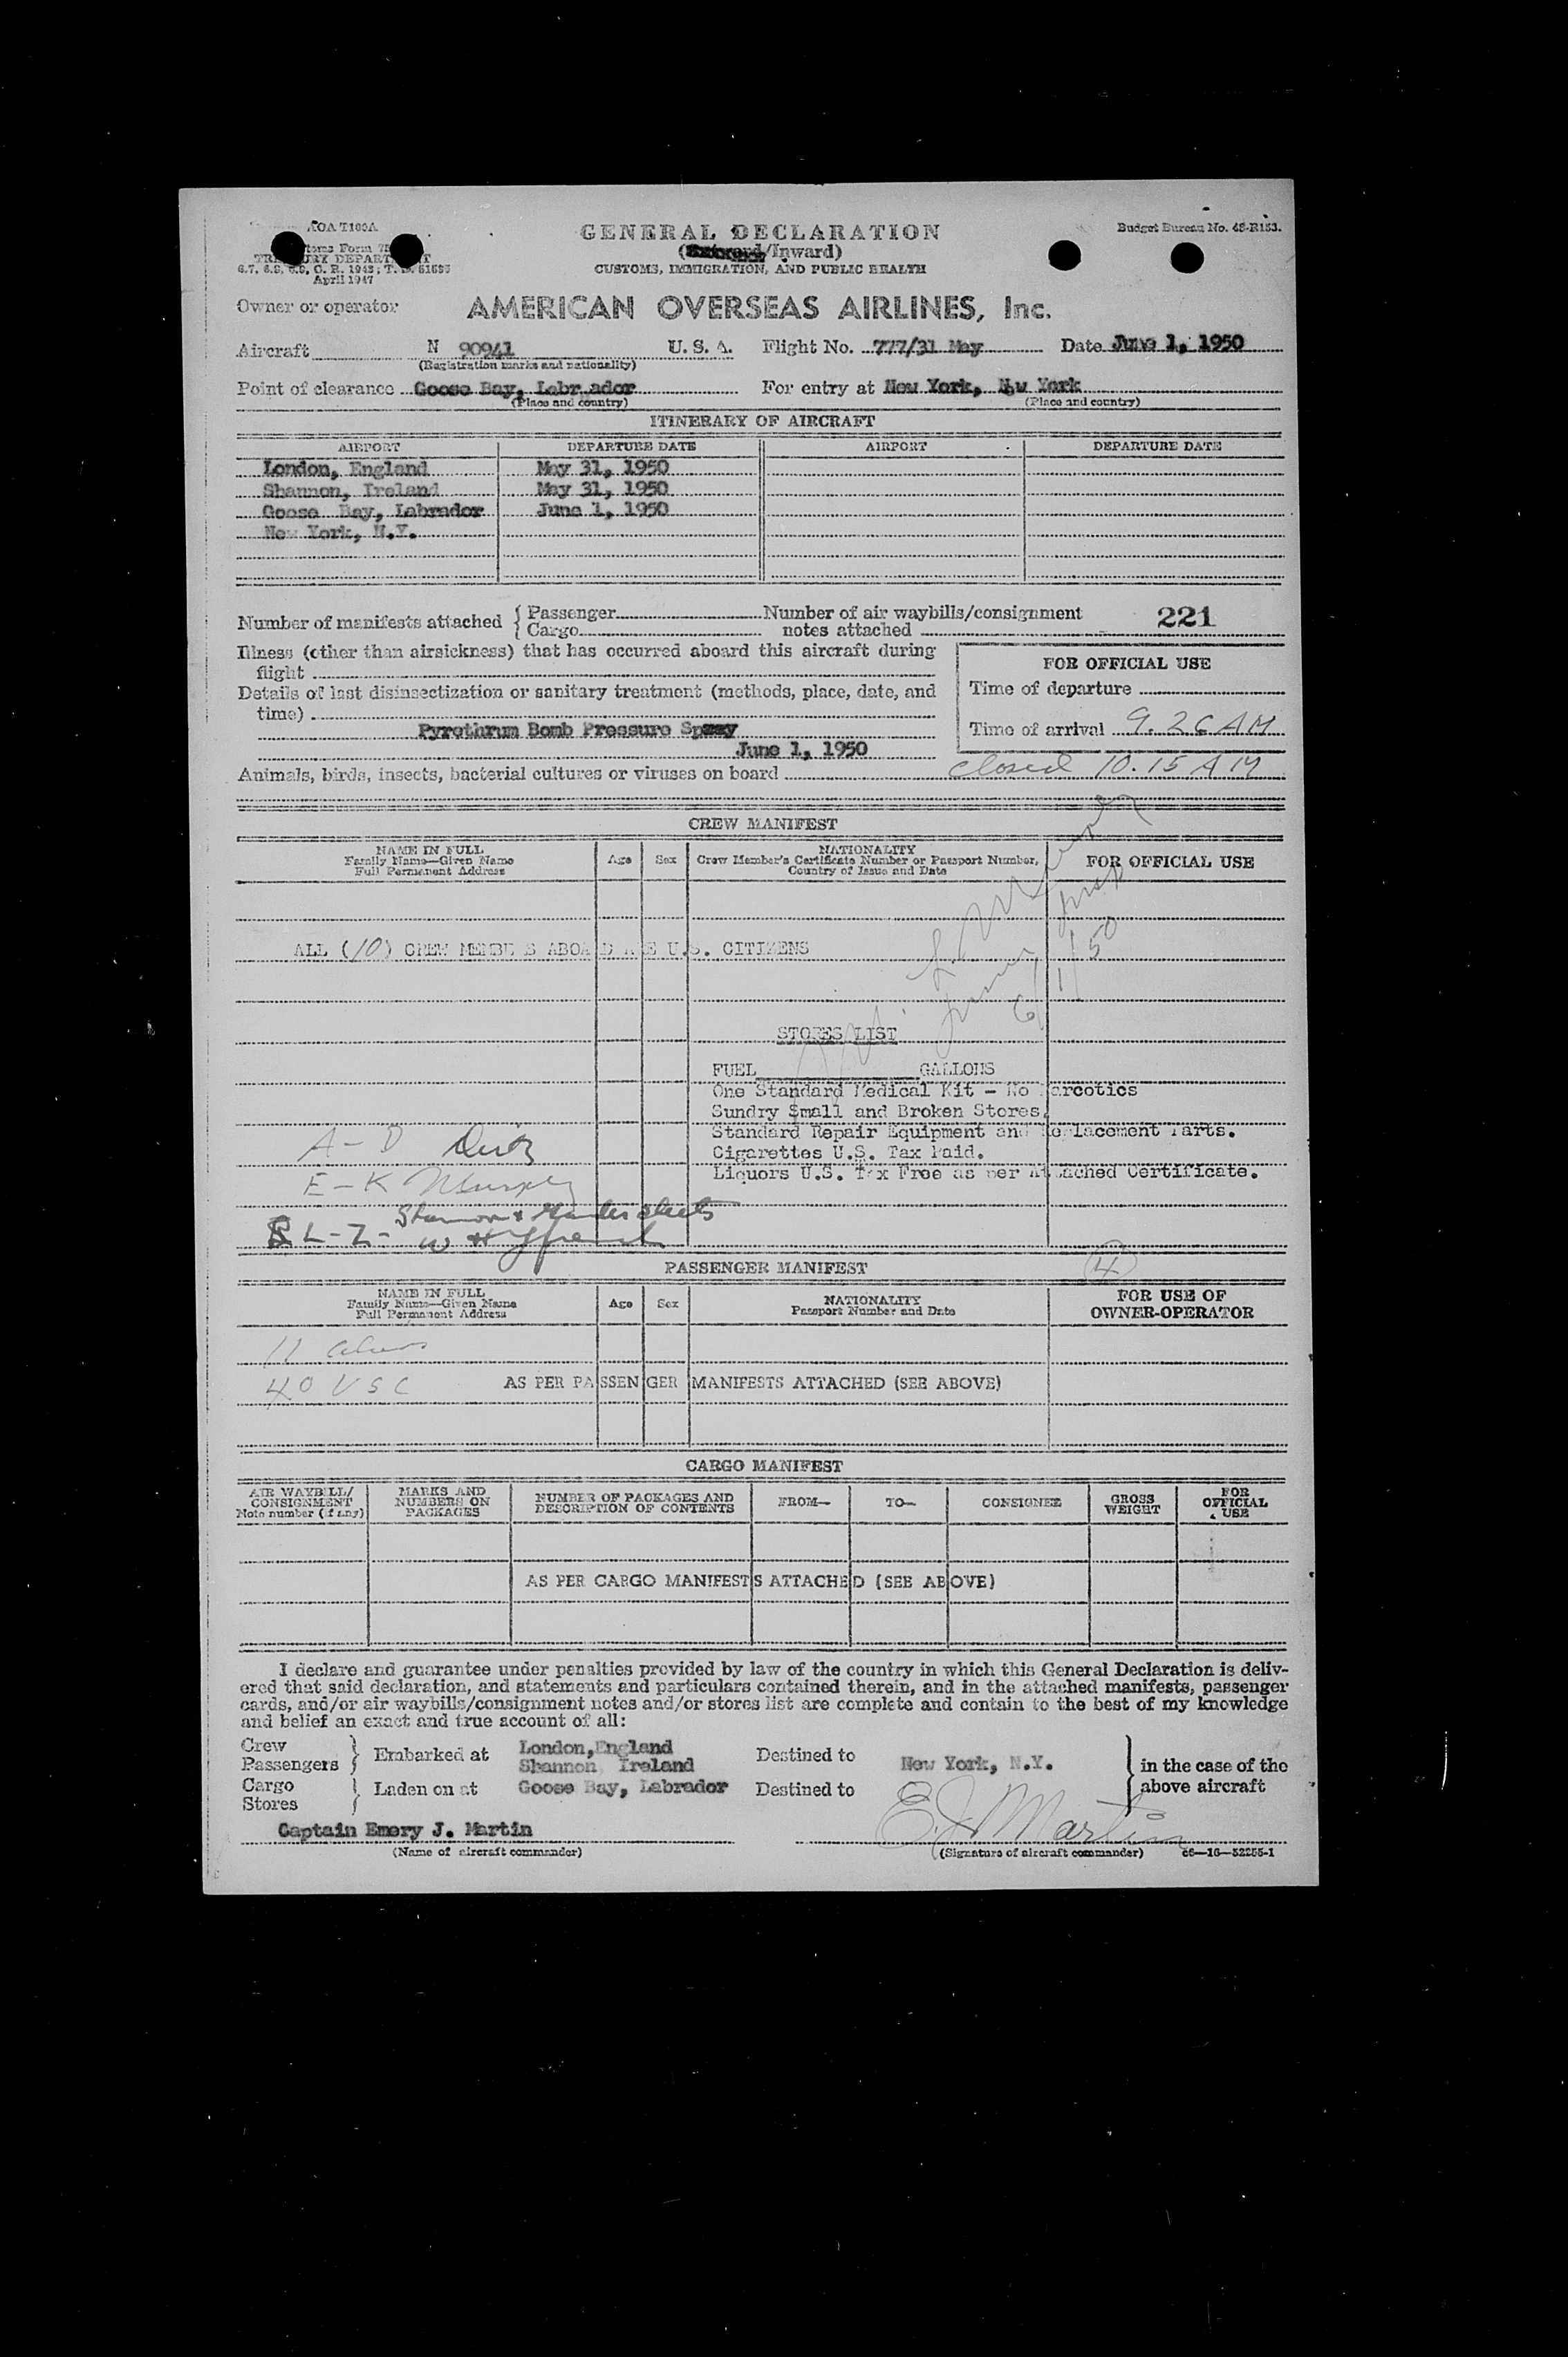 AOA T100A
GENERAL DECLARATION
Budget Bureau No. 48-R153.
Customs Form 75
(Outward/Inward)
TREASURY DEPARTMENT
CUSTOMS, IMMIGRATION, AND PUBLIC HEALTH
April 1947
Owner or operator AMERICAN OVERSEAS AIRLINES, Inc.
Aircraft N 90941 U. S. A. Flight No. 777/31 May Date June 1, 1950
(Registration marks and nationality)
Point of clearance Goose Bay, Labrador For entry at New York, New York
(Place and country) (Place and country)
ITINERARY OF AIRCRAFT
AIRPORT DEPARTURE DATE AIRPORT DEPARTURE DATE
London, England May 31, 1950
Shannon, Ireland May 31, 1950
Goose Bay, Labrador June 1, 1950
New York, N.Y.
Number of manifests attached { Passenger Number of air waybills/consignment 221
{ Cargo notes attached
Illness (other than airsickness) that has occurred aboard this aircraft during
flight
FOR OFFICIAL USE
Details of last disinsectization or sanitary treatment (methods, place, date, and
Time of departure
time)
Pyrethrum Bomb Pressure Spray
Time of arrival 9.26 AM
June 1, 1950
Animals, birds, insects, bacterial cultures or viruses on board closed 10.15 AM
CREW MANIFEST
NAME IN FULL
Family Name—Given Name
Full Permanent Address
Age Sex
NATIONALITY
Crew Member's Certificate Number or Passport Number,
Country of Issue and Date
FOR OFFICIAL USE
ALL (10) CREW MEMBERS ABOARD ARE U.S. CITIZENS
6/1/50
STORES LIST
FUEL GALLONS
One Standard Medical Kit - No Narcotics
Sundry Small and Broken Stores.
Standard Repair Equipment and Replacement Parts.
Cigarettes U.S. Tax Paid.
Liquors U.S. Tax Free as per Attached Certificate.
A - D
E - K Murphy
L - Z -
PASSENGER MANIFEST
4
NAME IN FULL
Family Name—Given Name
Full Permanent Address
Age Sex
NATIONALITY
Passport Number and Date
FOR USE OF
OWNER-OPERATOR
11 aliens
40 USC AS PER PASSENGER MANIFESTS ATTACHED (SEE ABOVE)
CARGO MANIFEST
AIR WAYBILL/
CONSIGNMENT
Note number (if any)
MARKS AND
NUMBERS ON
PACKAGES
NUMBER OF PACKAGES AND
DESCRIPTION OF CONTENTS
FROM— TO— CONSIGNEE
GROSS
WEIGHT
FOR
OFFICIAL
USE
AS PER CARGO MANIFESTS ATTACHED (SEE ABOVE)
I declare and guarantee under penalties provided by law of the country in which this General Declaration is deliv-
ered that said declaration, and statements and particulars contained therein, and in the attached manifests, passenger
cards, and/or air waybills/consignment notes and/or stores list are complete and contain to the best of my knowledge
and belief an exact and true account of all:
Crew
Passengers } Embarked at London, England Destined to New York, N.Y. } in the case of the
Shannon Ireland
Cargo } Laden on at Goose Bay, Labrador Destined to above aircraft
Stores
Captain Emery J. Martin E. J. Martin
(Name of aircraft commander) (Signature of aircraft commander) 66—16—52255-1